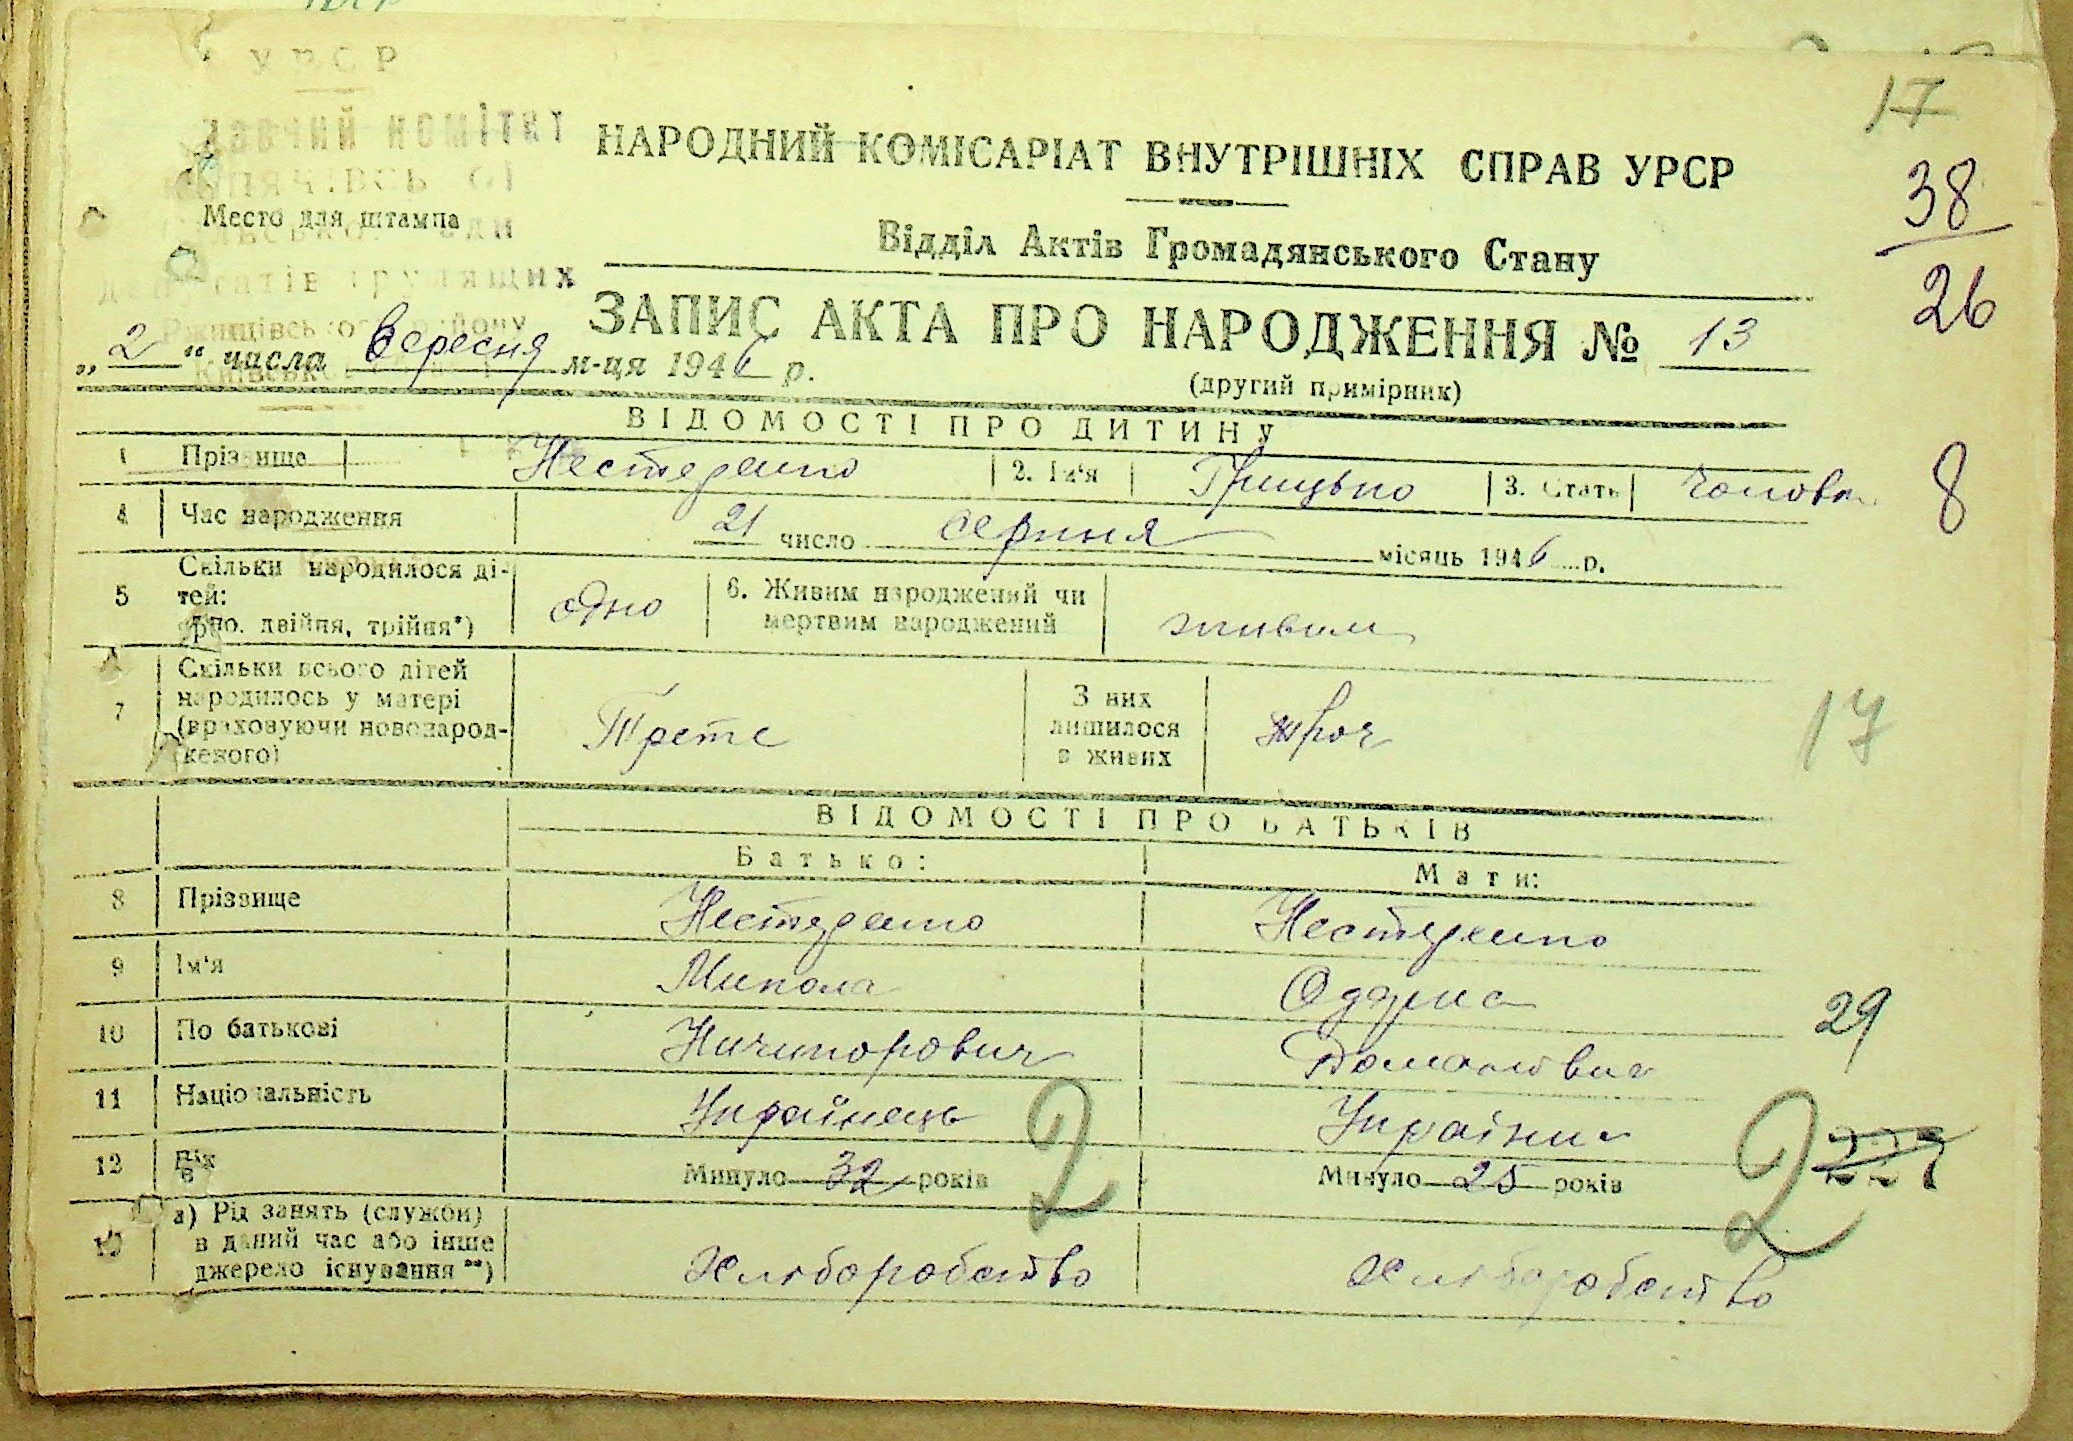 УРСР
17
38
26
НАРОДНИЙ КОМІСАРІАТ ВНУТРІШНІХ СПРАВ УРСР
Место для штампа
Відділ Актів Громадянського Стану
ЗАПИС АКТА ПРО НАРОДЖЕННЯ № 13
„2“ числа Вересня м-ця 1946 р.
(другий примірник)
ВІДОМОСТІ ПРО ДИТИНУ
1 Прізвище Нестеренко 2. Ім'я Грицько 3. Стать чолов. 8
4 Час народження 21 число серпня місяць 1946 р.
5 Скільки народилося ді-
тей:
одно, двійня, трійня*) одно
6. Живим народжений чи
мертвим народжений живим
7 Скільки всього дітей
народилось у матері
(враховуючи новонарод-
женого) Трете
З них
лишилося
в живих троє
17
ВІДОМОСТІ ПРО БАТЬКІВ
Батько: Мати:
8 Прізвище Нестеренко Нестеренко
9 Ім'я Микола
10 По батькові Ничипорович 29
11 Національність Українець Українка
2 2
12 Вік Минуло 32 років Минуло 25 років
13 а) Рід занять (служби)
в даний час або інше
джерело існування **) Хлiборобство Хлiборобство